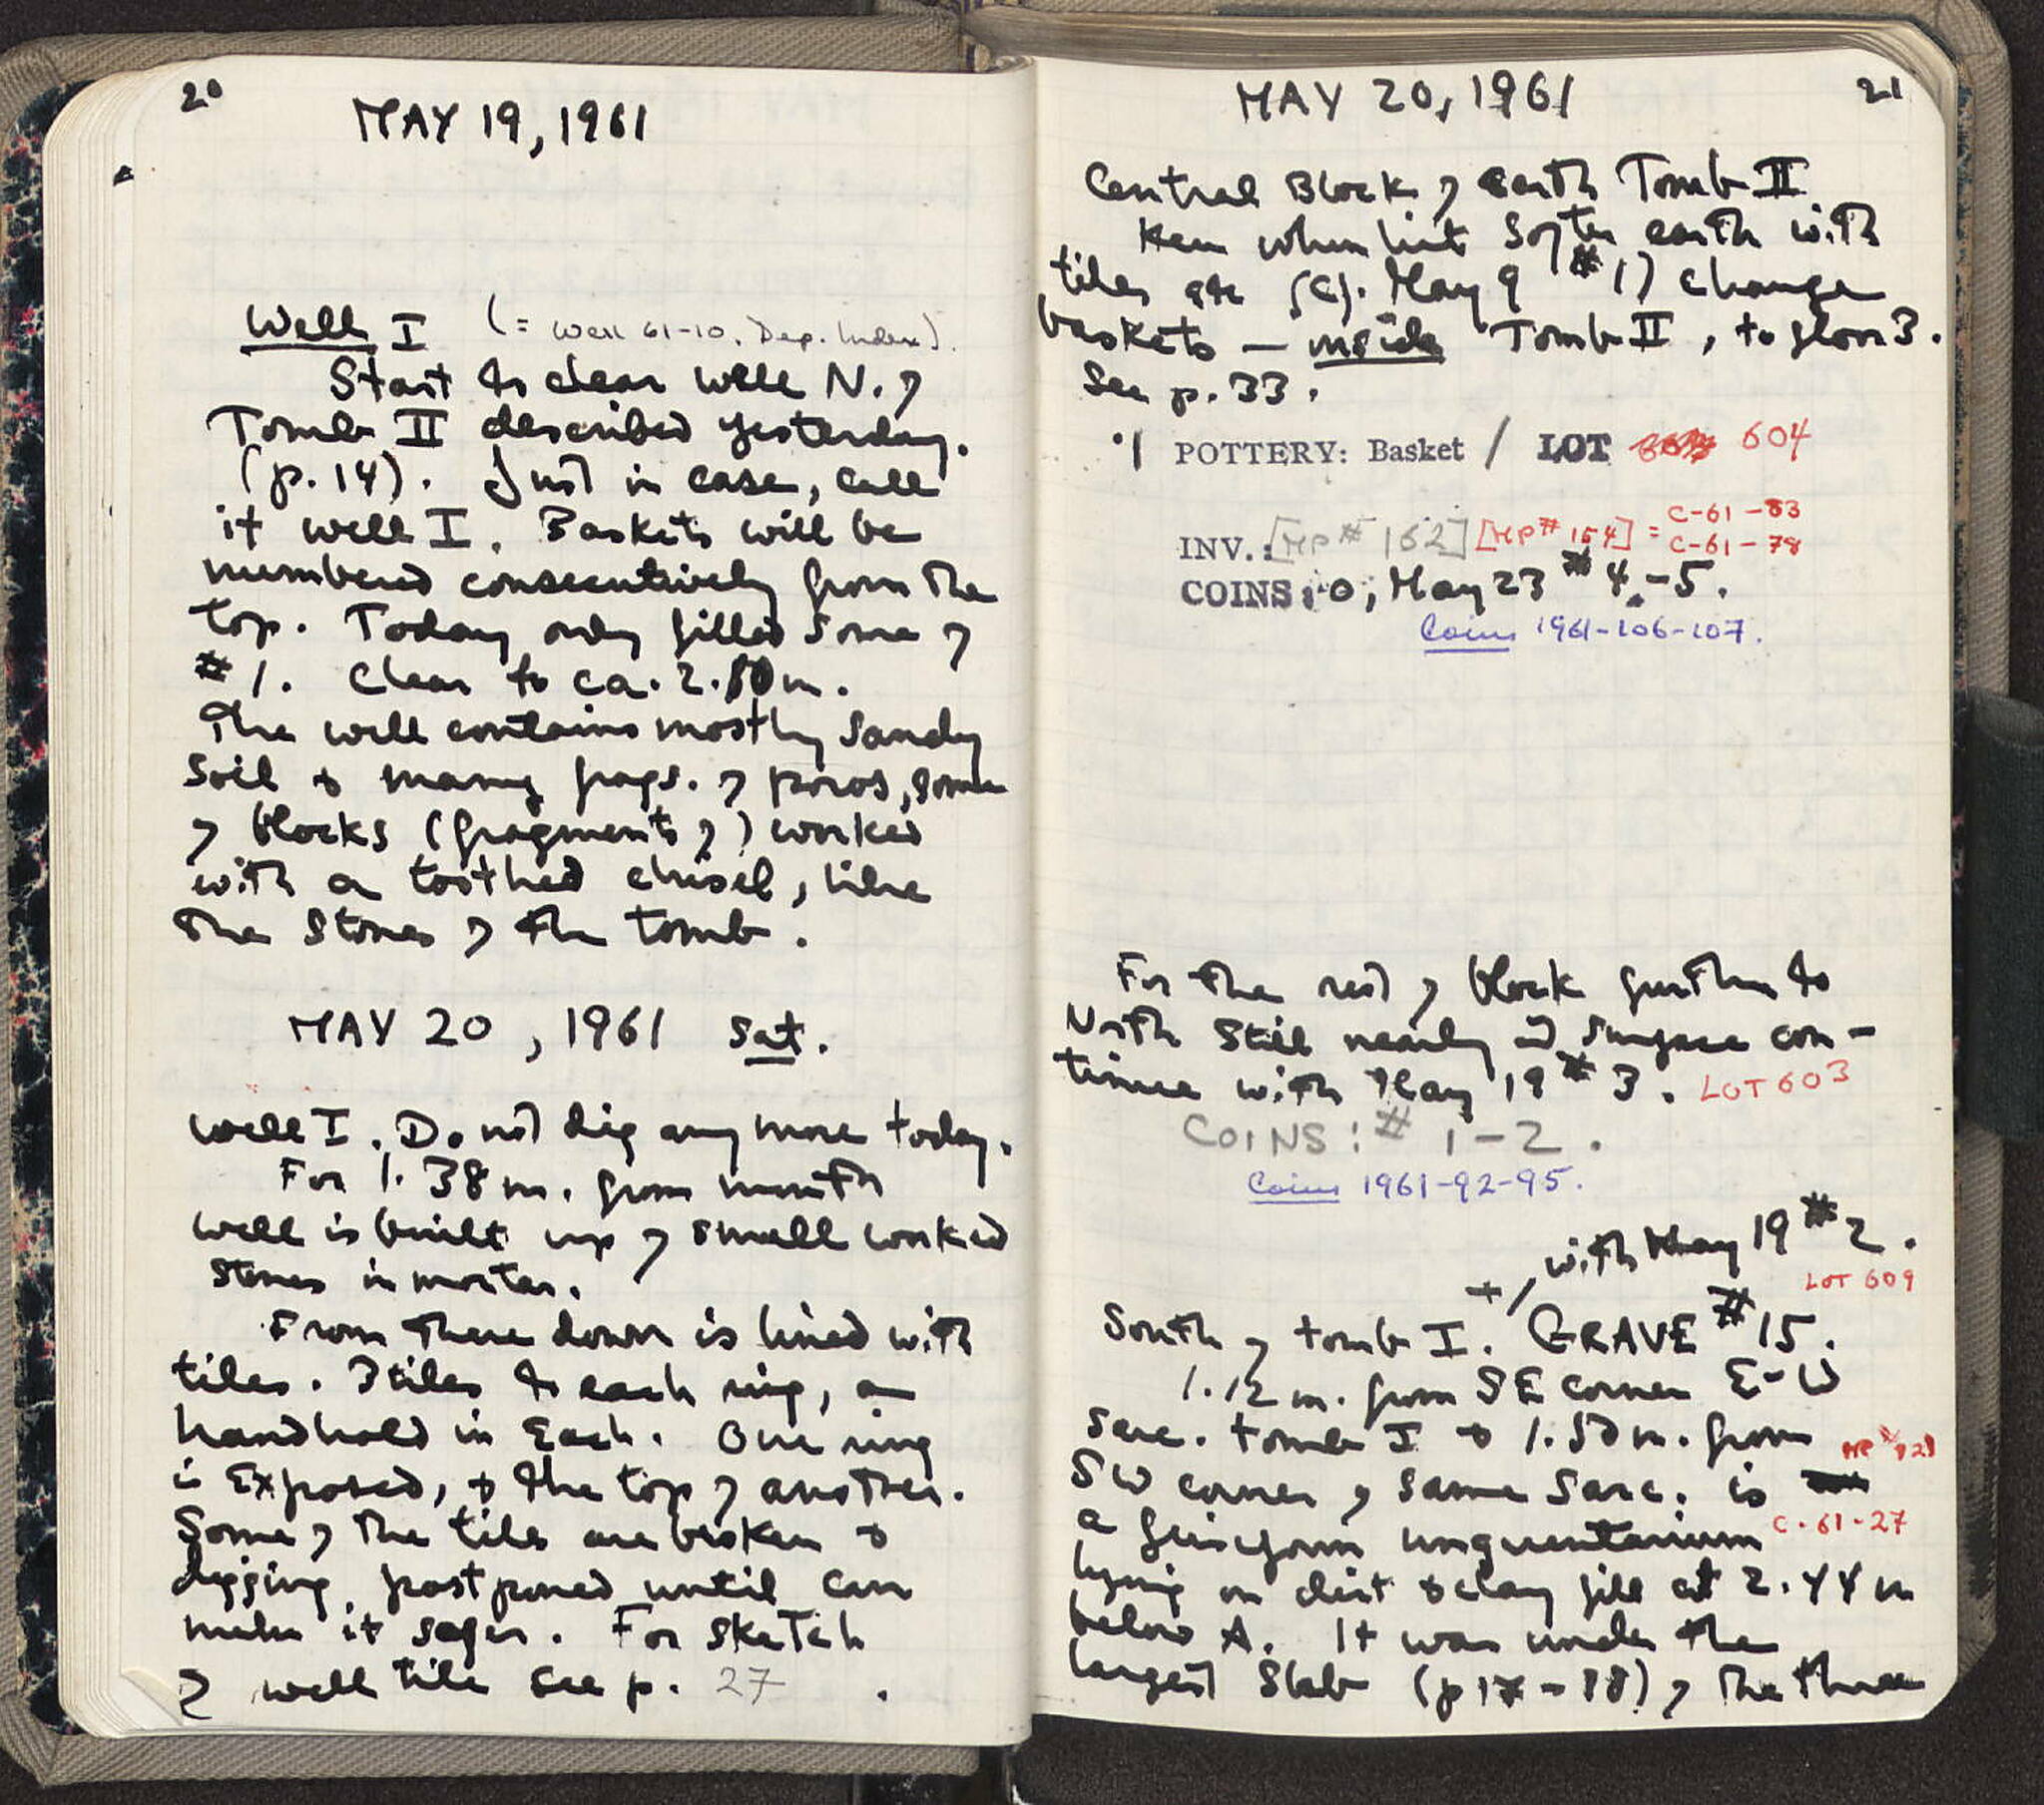 20
MAY 19, 1961
Well I (= Well 61-10. Dep. Index).
Start to clear well N. of
Tomb II described yesterday.
(p. 14). Just in case, call
it well I. Baskets will be
numbered consecutively from the
top. Today only filled some of
#1. Clear to ca. 2.80m.
The well contains mostly sandy
soil & many frags. of poros, some
of blocks (fragments of) worked
with a toothed chisel, like
the stones of the tomb.
MAY 20, 1961 Sat.
Well I. Do not dig any more today.
For 1.38 m. from mouth
well is built up of small worked
stones in mortar.
From there down is lined with
tiles. 3 tiles to each ring, a
handhold in Each. One ring
is Exposed, & the top of another.
Some of the tile are broken &
digging postponed until can
make it safer. For sketch
of well tile see p. 27.
MAY 20, 1961
21
Central Block of earth Tomb II
when hit softer earth with
tiles etc (cf. May 9 #1) change
baskets – inside Tomb II, to floor 3.
See p. 33.
·1 POTTERY: Basket / LOT 604
INV.: [MP# 162] [MP# 154] = C-61-83
C-61-78
COINS: 0; May 23 #4-5.
Coins 1961-106-107.
For the rest of block further to
North still nearly at surface con-
tinue with May 19 #3. LOT 603
COINS: # 1-2.
Coins 1961-92-95.
+/ with May 19 #2.
LOT 609
South of tomb I. GRAVE #15.
1.12 m. from SE corner E-W
Sarc. tomb I & 1.50 m. from
SW corner of same Sarc. is
a fusiform unguentarium C-61-27
lying on dirt & clay fill at 2.44 m
below A. It was under the
largest Slab (p 17-18) of the three